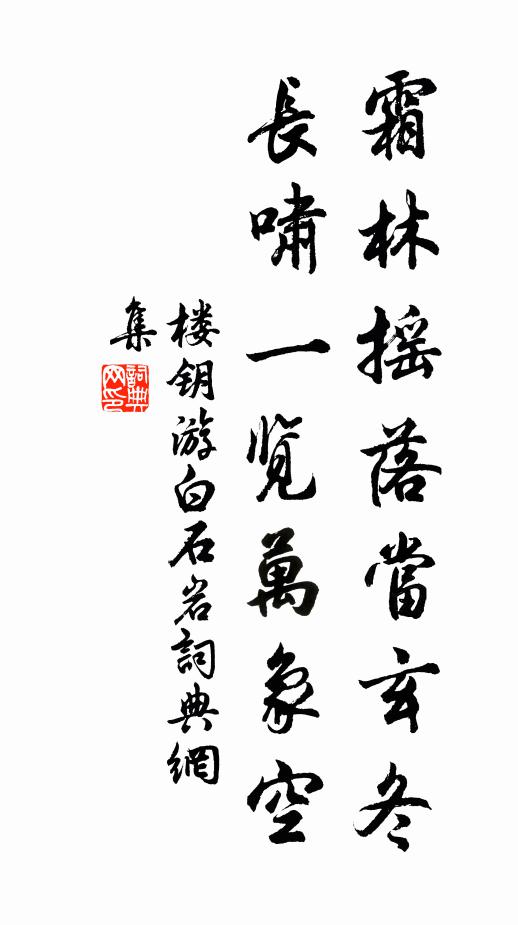 霜林摇落當玄冬
長嘯一览萬象空
楼钥游白石岩詞典網
集
詞典网印